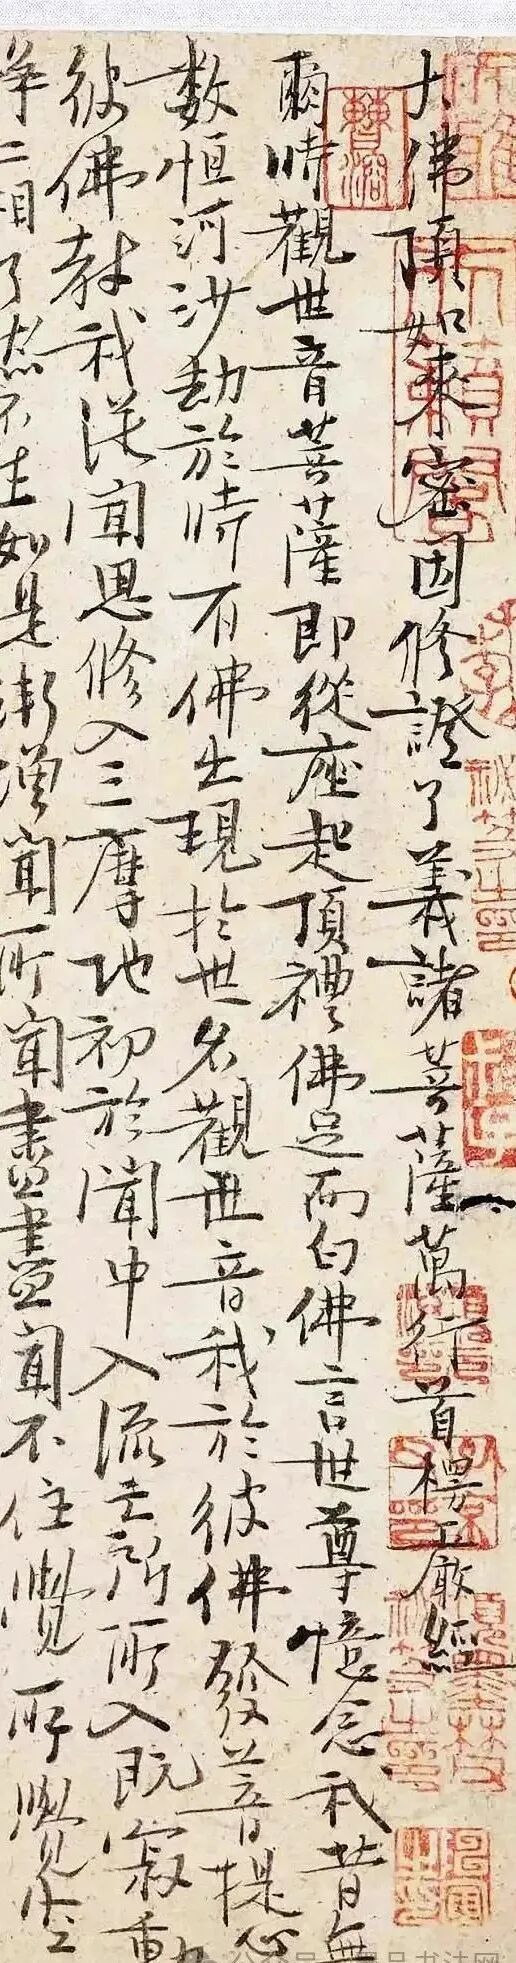 大佛頂如來密因修證了義諸菩薩萬行首楞嚴經
爾時觀世音菩薩即從座起頂禮佛足而白佛言世尊憶念我昔無
數恒河沙劫於時有佛出現於世名觀世音我於彼佛發菩提心
彼佛教我從聞思修入三摩地初於聞中入流亡所所入既寂動
二相了然不生如是漸增聞所聞盡盡聞不住覺所覺空